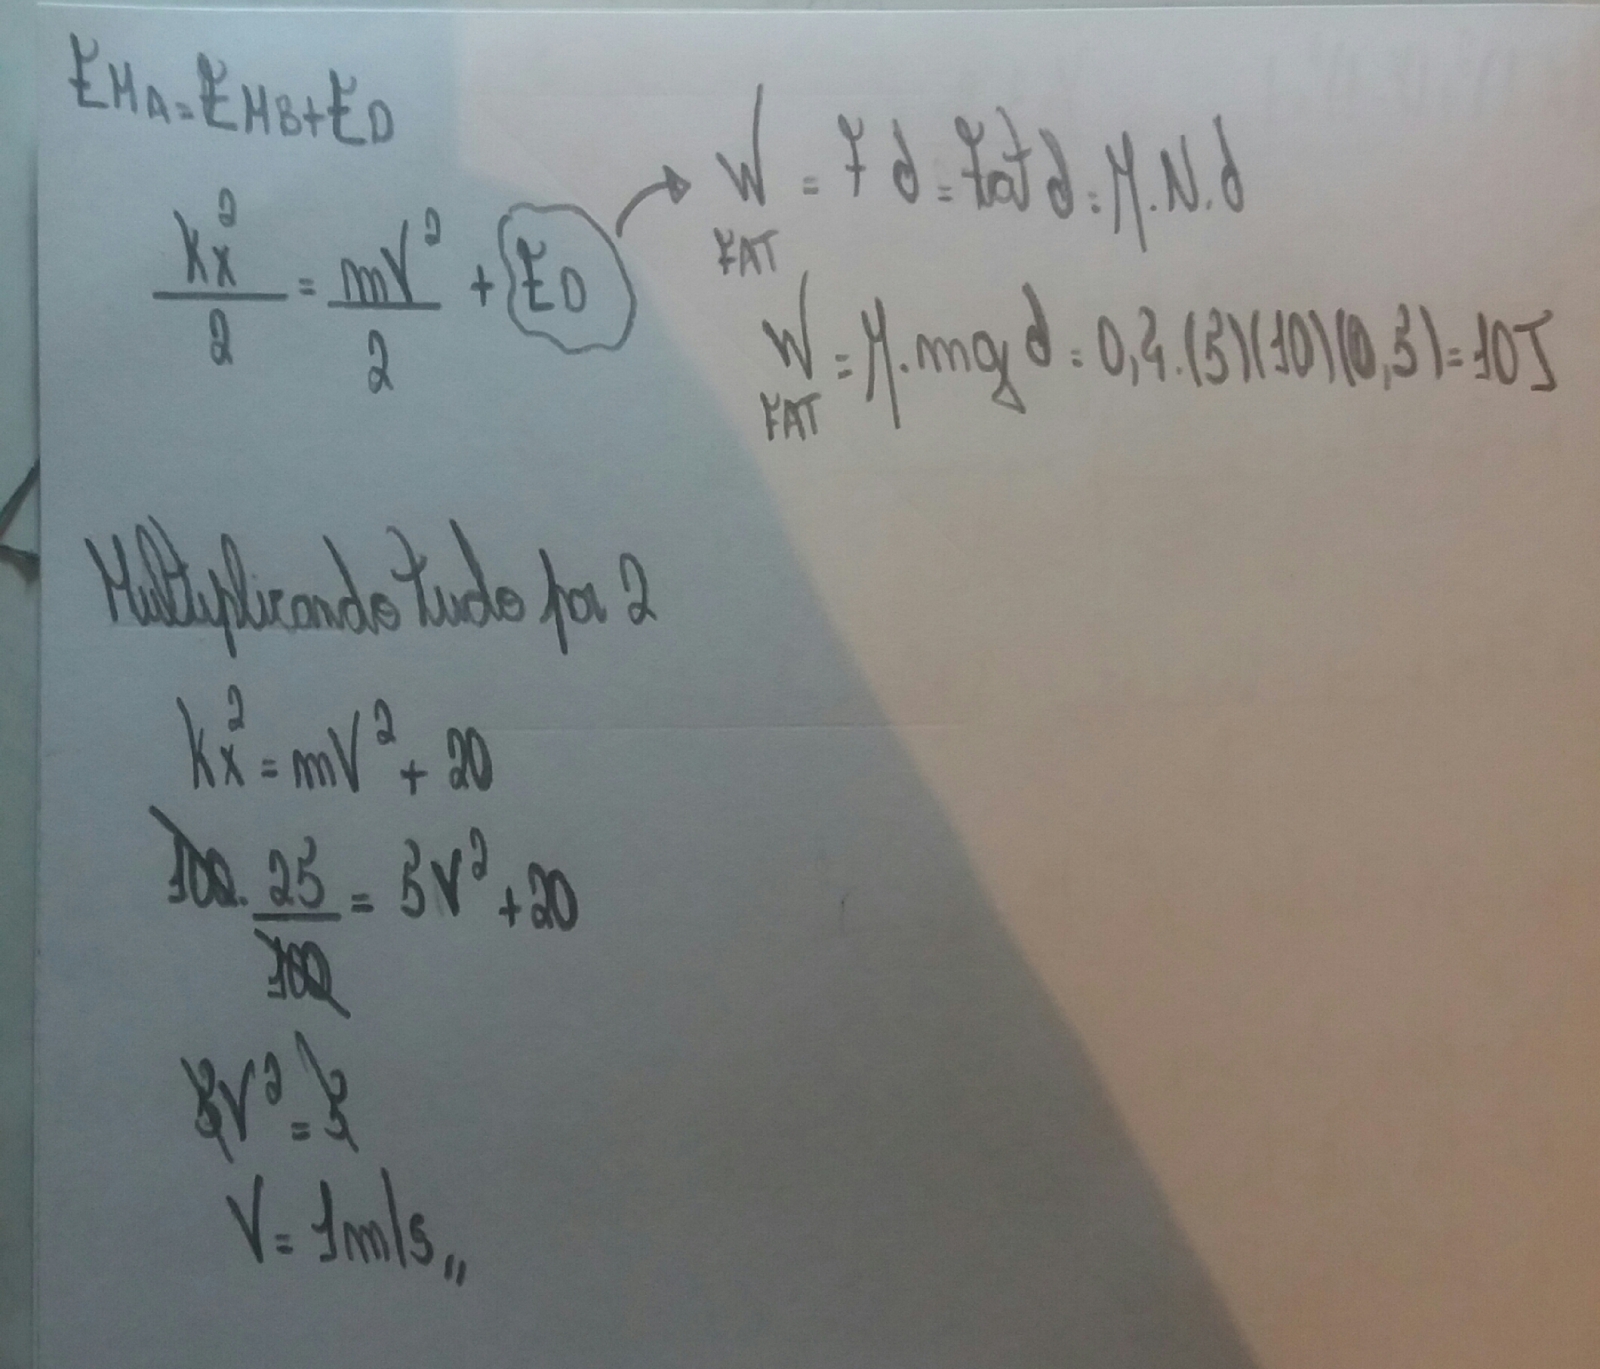 EMA = EMB + ED
kx²/2 = mV²/2 + ED → W FAT = F d = Fat d = μ.N.d
W FAT = μ.mg d = 0,4.(5)(10)(0,5) = 10J
Multiplicando tudo por 2
kx² = mV² + 20
100. 25/100 = 5V² + 20
5V² = 5
V = 1m/s,,